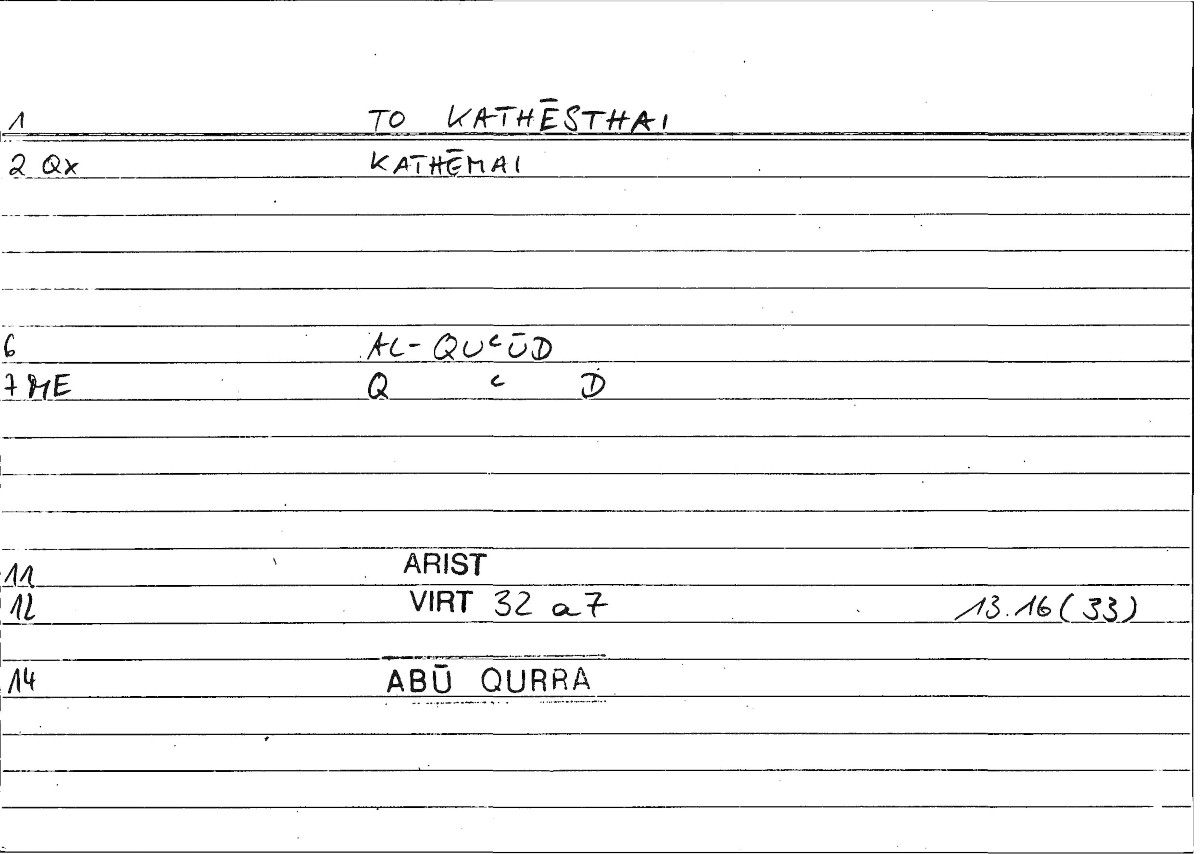 1 TO KATHĒSTHAI
2 Qx KATHĒMAI
6 AL-QUʿŪD
7 ME Q ʿ D
11 ARIST
12 VIRT 32 a7 13.16(33)
14 ABŪ QURRA